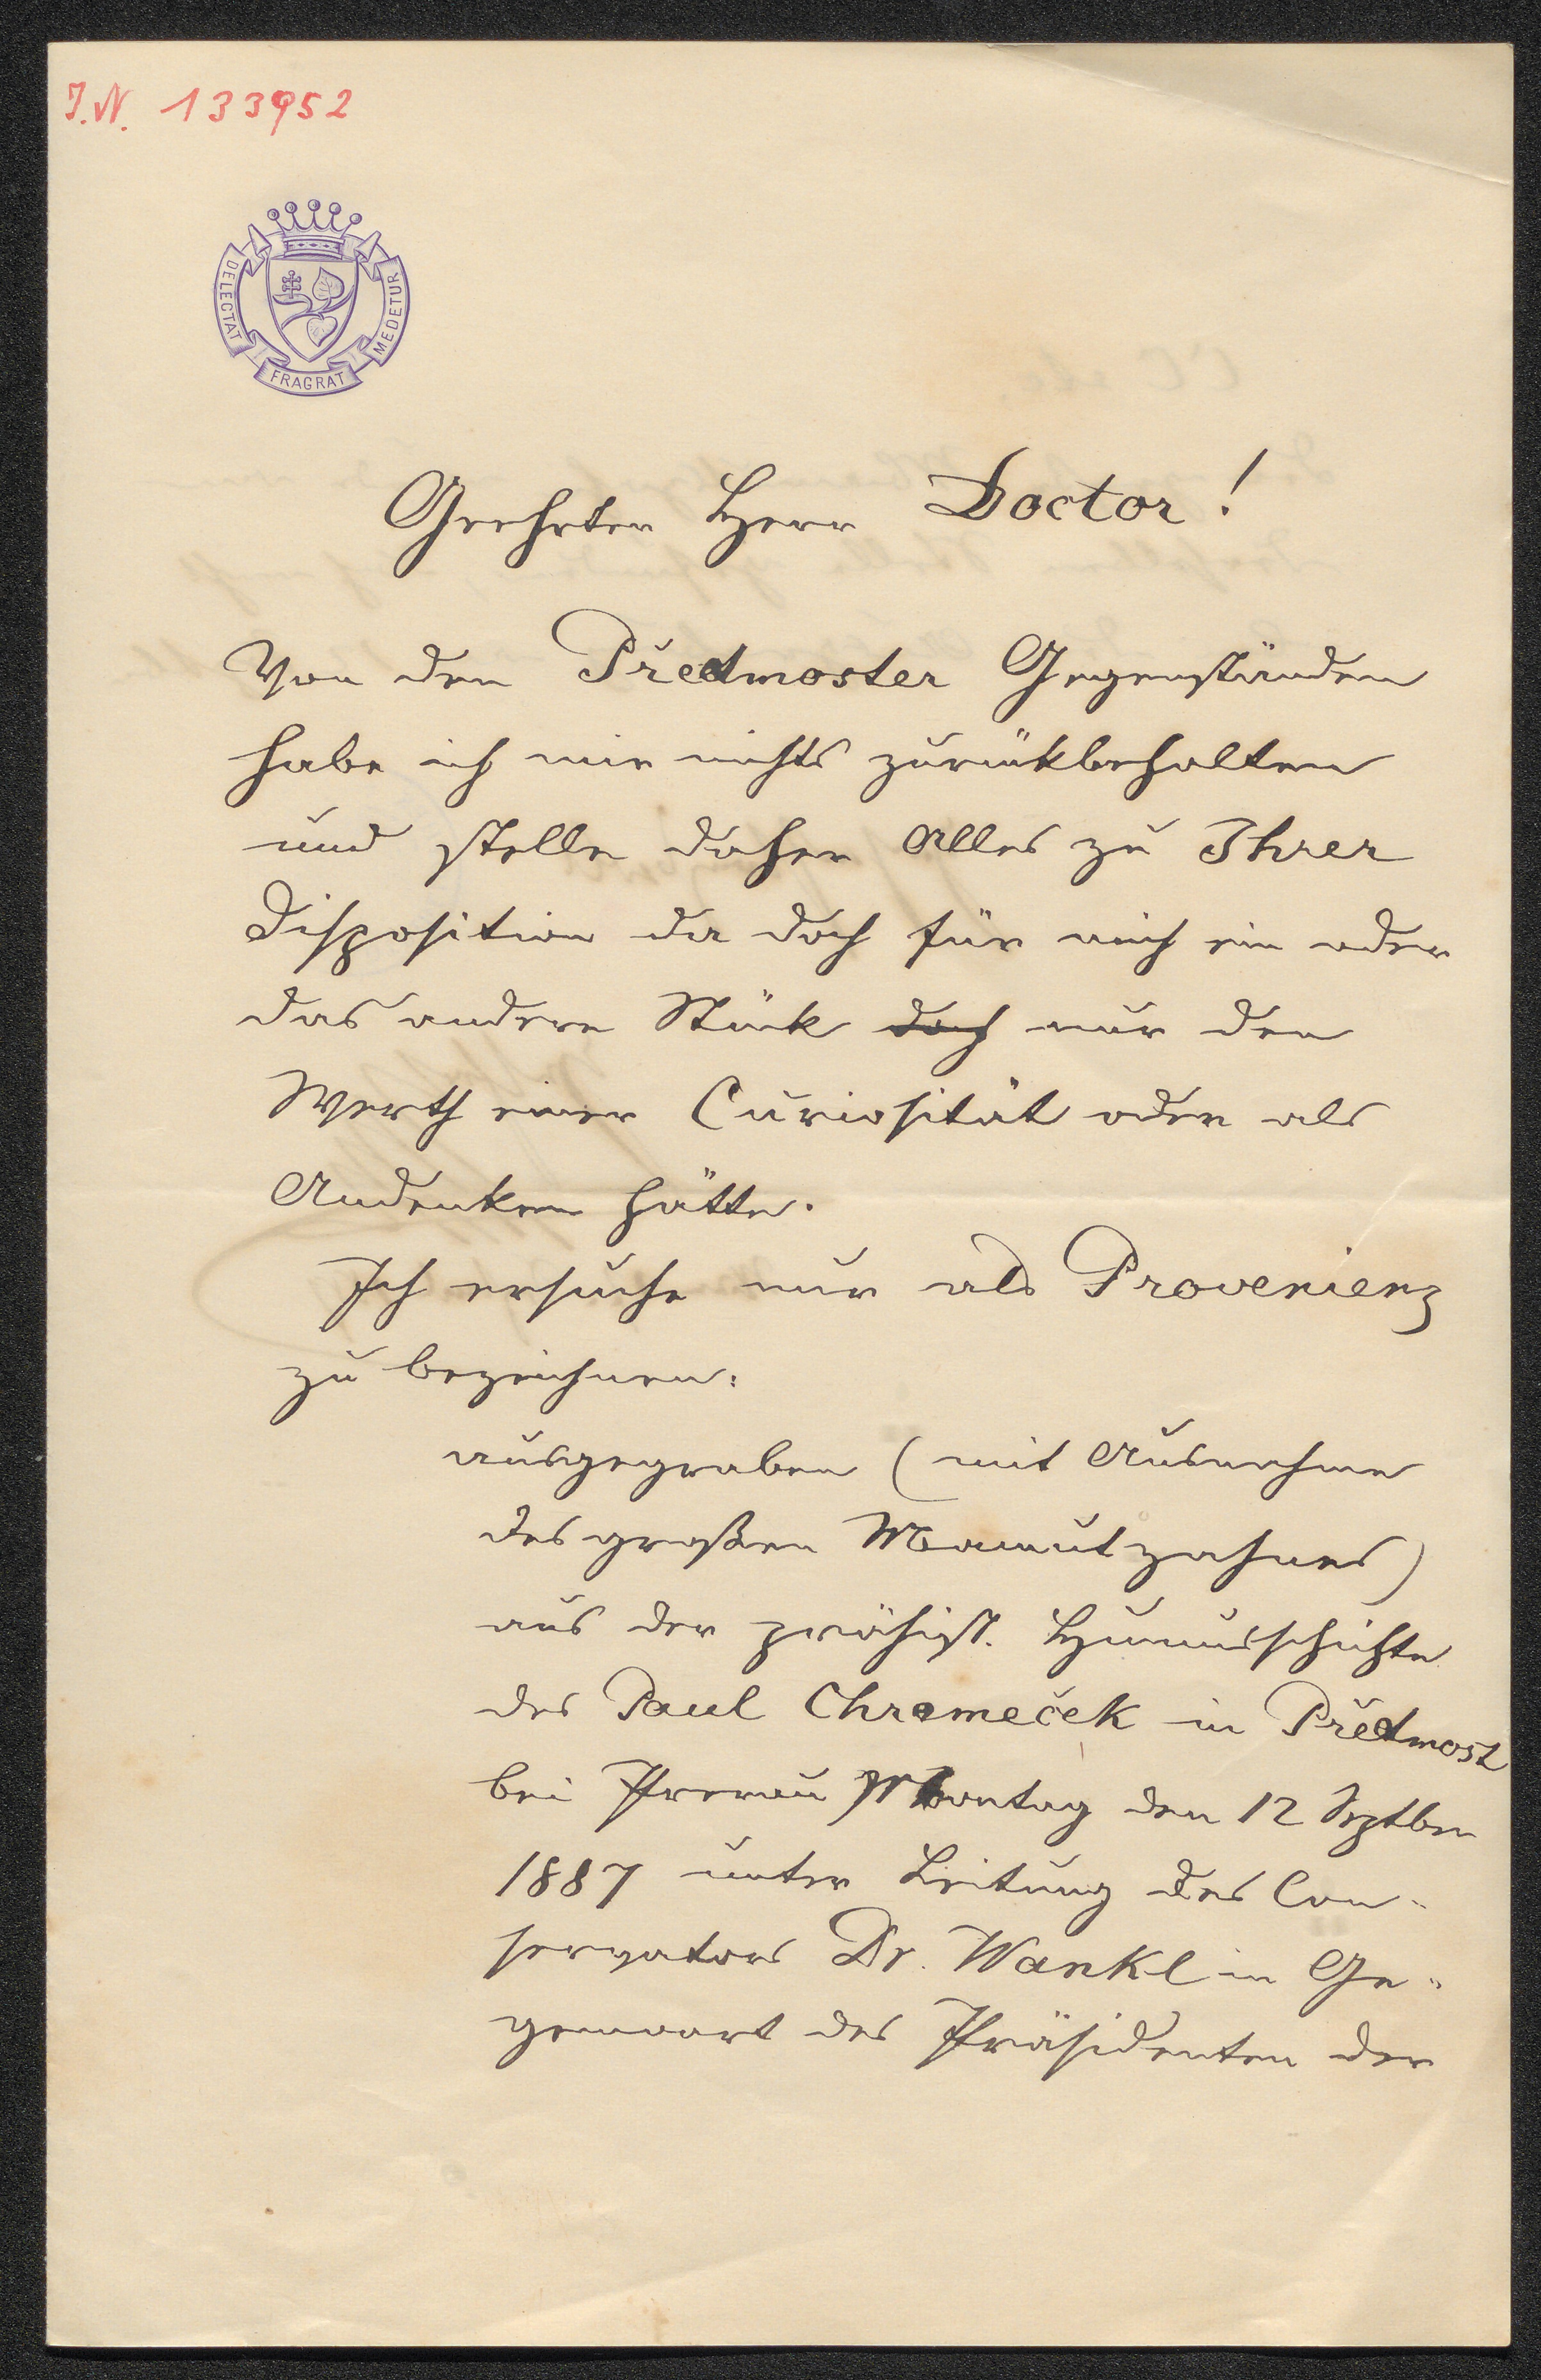 J.N. 133952
DELECTAT
FRAGRAT
MEDETUR
Geehrter Herr Doctor!
Von den Předmoster Gegenständen
habe ich mir nichts zurückbehalten
und stelle daher Alles zu Ihrer
Disposition da doch für mich ein oder
das andere Stück doch nur den
Werth einer Curiosität oder als
Andenken hätte.
Ich ersuche nur als Provenienz
zu bezeichnen:
ausgegraben (mit Ausnahme
des großen Mamutzahnes)
aus der prähist. Humusschichte
des Paul Chromeček in Předmost
bei Prerau Montag den 12 Septber
1887 unter Leitung des Con-
servators Dr. Wankl in Ge-
genwart des Präsidenten der